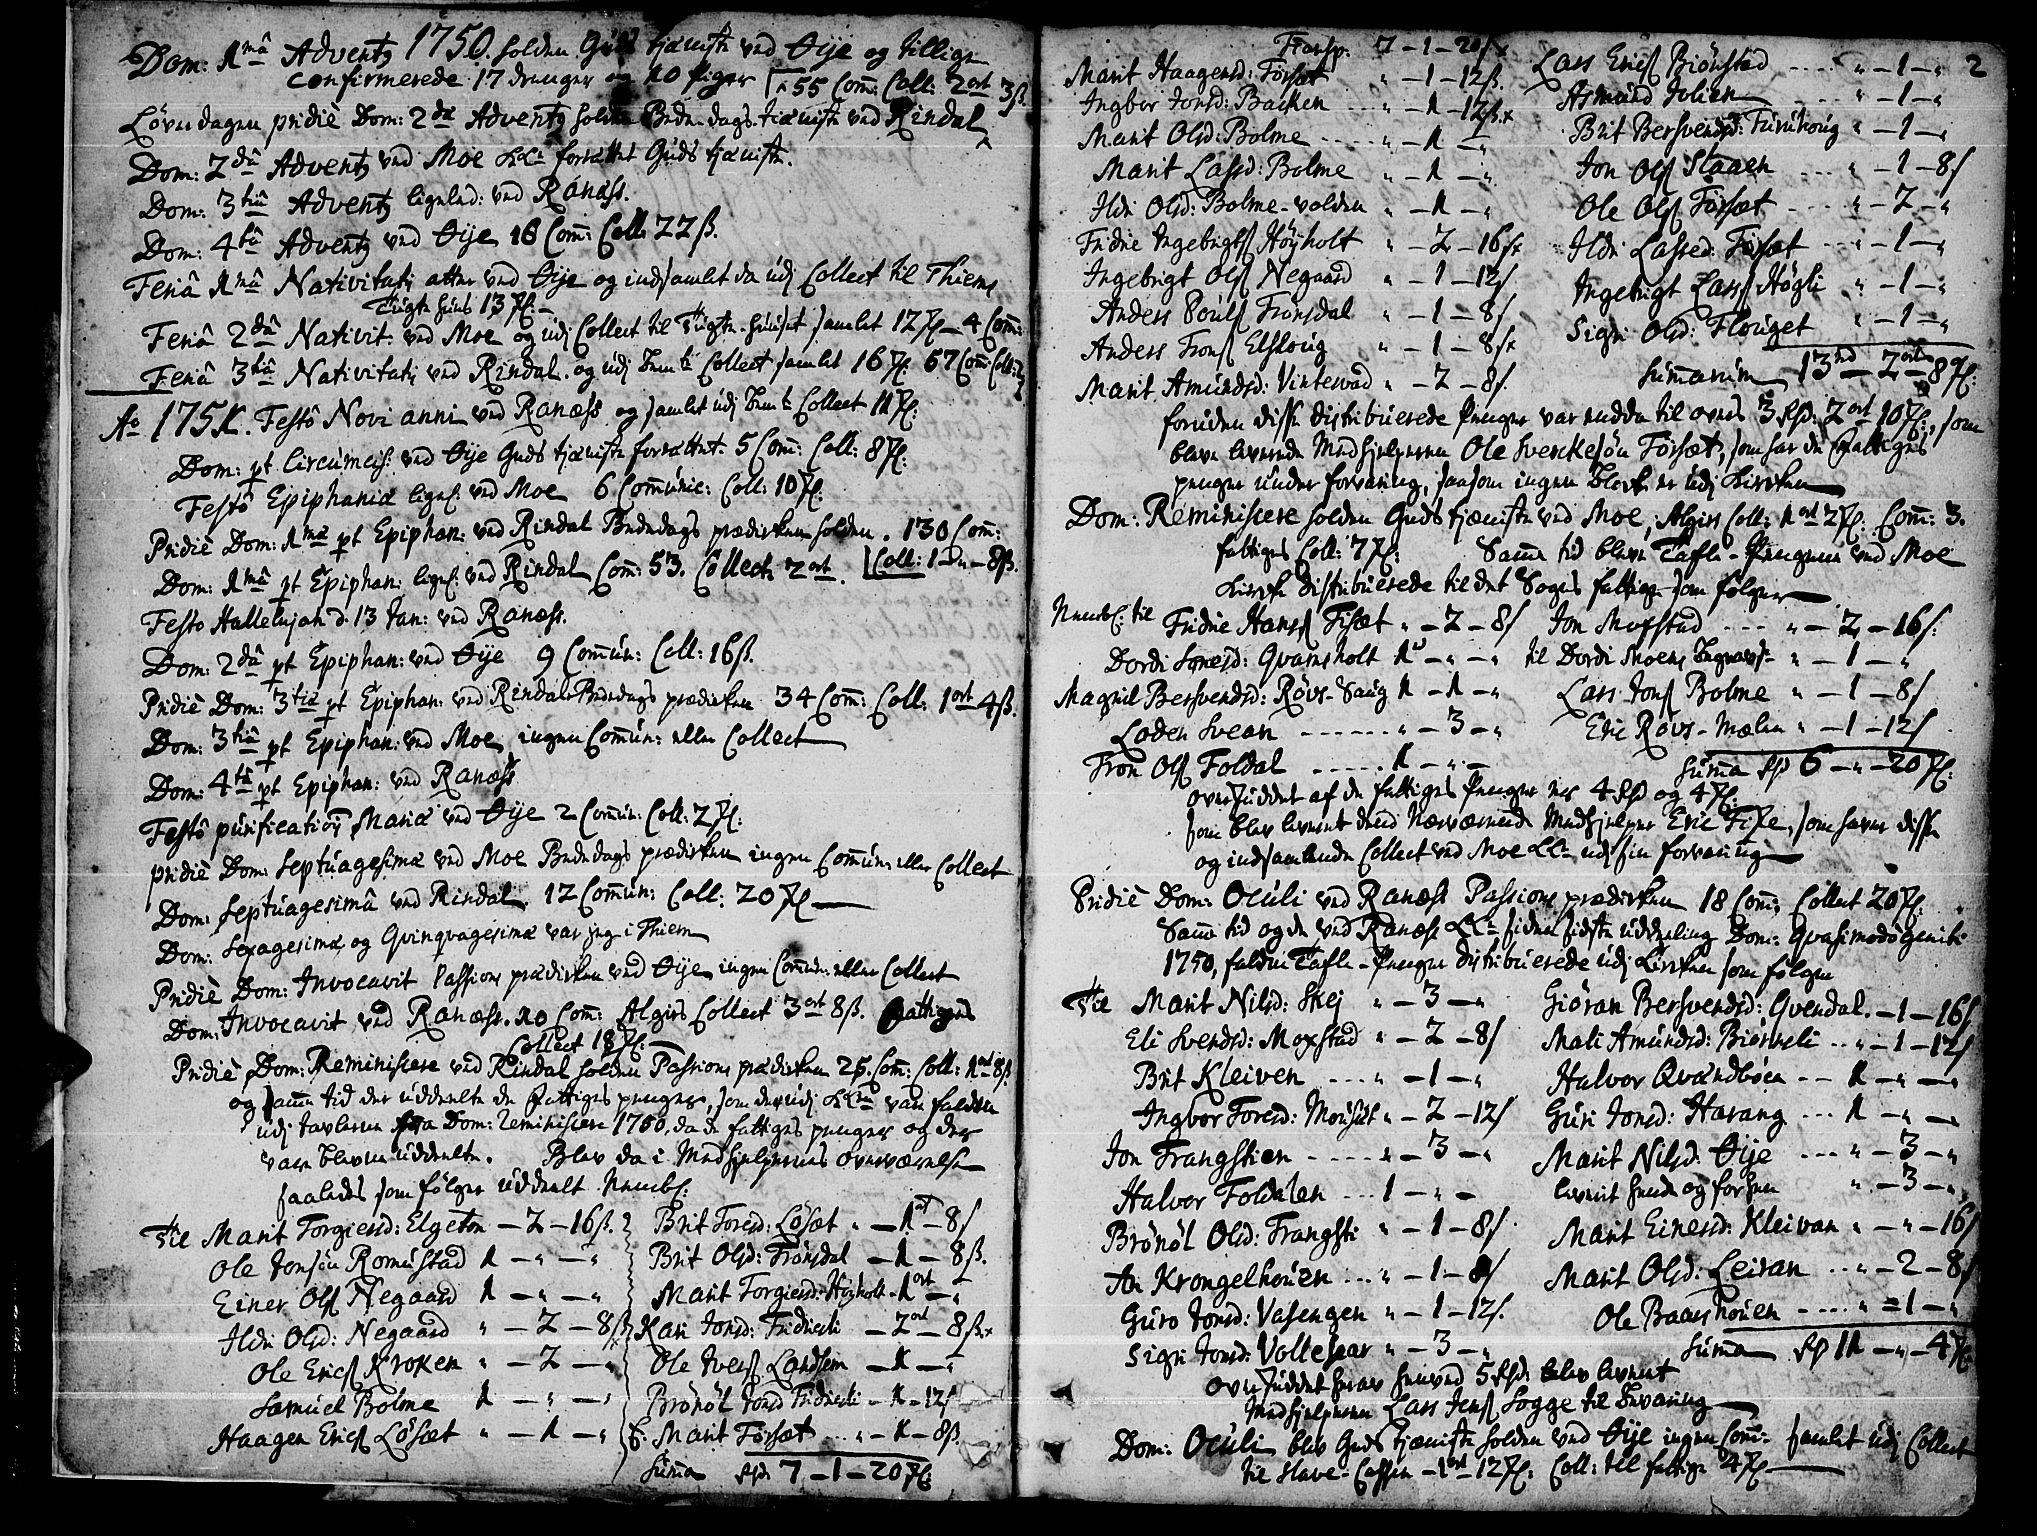 Dom: 1mâ Advents 1750. holden Guds tieniste ved Øije og tillige
confirmerede 17 drenger og 10 piger 55 Com: Coll: 2ort 3ß.
Løverdagen pridie Dom: 2dæ Advents holden Bededags tieniste ved Rindal
Dom: 2dâ Advents ved Moe KK: forrettet Guds tieniste.
Dom: 3tiâ Advents ligeled: ved Ranæss.
Dom: 4tâ Advents ved Øije 16 Com: Coll: 22ß.
Feriâ 1mâ Nativitatis atter ved Øije og indsamlet da udj Collect til Thiems
Tugte huus 13 ß.
Feriâ 2dâ Nativit: ved Moe og udj Collect til Tugte-huuset samlet 12 ß 4 Com:
Feriâ 3tiâ Nativitatis ved Rindal og udj bem:te Collect samlet 16 ß: 67 Com: Coll:
Ao 1751. Festô Novi anni ved Ranæss og samlet udj bem:te Collect 11 ß:
Dom: pt Circumcis: ved Øije Guds tieniste forrettet. 5 Com: Coll: 8 ß:
Festô Epiphaniæ ligel: ved Moe 6 Communic: Coll: 10 ß:
Pridiè Dom: 1mæ pt Epiphan: ved Rindal Bededags prædiken holden. 130 Com:
Coll: 1 - " - 8ß.
Dom: 1mâ pt Epiphan: ligel: ved Rindal Com: 53. Collect: 2ort.
Festo Hallelujah d. 13 Jan: ved Ranæss.
Dom: 2dâ pt Epiphan: ved Øije 9 Commun: Coll: 16ß.
Pridiè Dom: 3tiæ pt Epiphan: ved Rindal Bededags prædiken 34 Com: Coll: 1ort 4ß.
Dom: 3tiâ pt Epiphan: ved Moe ingen Commun: eller Collect
Dom: 4tâ pt Epiphan: ved Ranæss
Festô purificationis Mariæ ved Øije 2 Commun: Coll: 2 ß:
pridiè Dom: Septuagesimæ ved Moe Bededags prædiken ingen Commun: eller Collect
Dom: Septuagesimâ ved Rindal. 12 Commun: Coll: 20 ß
Dom: Sexagesimæ og Qvinqvagesimæ var jeg i Thiem
Pridiè Dom: Invocavit Passions prædiken ved Øije ingen Commun: eller Collect
Dom: Invocavit ved Ranæss. 10 Com: Algirs Collect 3ort 8ß. Fattiges
Collect 18 ß:
Pridiè Dom: Reminiscere ved Rindal holden Passions prædiken 25. Com: Coll: 1ort 8ß
og samme tid der uddeelte de Fattiges penger, som der udj KKen vare faldne
udj tavlerne fra Dom: Reminiscere 1750, da de fattiges penger og der
vare bleven uddeelte. Blev da i Medhjelpernes overværelse
saaledes som følger uddeelt Nembl:
Til Marit Torgiersd: Elgeton - 2 - 16ß.
Ole Jonsøn Romustad 1 - " - "
Einer Ols Negaard 1 - " - "
Ildri Olsd: Negaard " - 2 - 8ß
Ole Erics Kroken " - 2 - "
Samuel Bolme 1 - " - "
Haagen Erics Løsæt " - 1 - "
Brit Toresd: Løsæt " - 1ort - 8ß
Brit Olsd: Tronsdal - 1 - 8ß.
Marit Torgiersd: Høyholt - 1ort - "
Kari Jonsd: Fidiesli - 2ort - 8ß.
Ole Ivers Landsem - 1 - "
Brønøl Jonsd Fidiesli - 1 - 12ß
E. Marit Førsæt - 1 - 8ß.
Summa Rd 7 - 1 - 20 ß:
2
Transp. 7 - 1 - 20ß
Marit Haagensd: Førsæt " - 1 - 12ß.
Ingbor Jonsd: Backen " - 1 - 12ß.
Marit Olsd: Bolme " - 1 - "
Marit Lassd: Bolme " - 1 - "
Ildri Olsd: Bolme-volden " - 1 - "
Fridrie Ingebrigts Höyholt " - 2 - 16ß
Ingebrigt Ols Negaard " - 1 - 12ß
Anders Pouls Tronsdal " - 1 - 8ß
Anders Trons Elshoug " - 1 - 8ß
Marit Amundsd: Vintervad " - 2 - 8ß.
Lars Erics Biönstad " - 1 - "
Asmund Jolien " - 1 - "
Brit Bersvendsd: Furuhoug " - 1 - "
Jon Ols Staaen " - 1 - 8ß
Ole Ols Førsæt - 2 - "
Ildri Lassed: Førsæt " - 1 - "
Ingebrigt Lass Högli " - 1 - "
Sigri Olsd: Flouget " - 1 - "
Summarum 13rd - 2ort - 8 ß:
foruden disse distribuerede Penger var endda til overs 3 Rd: 2ort 10 ß, som
bleve leverede Medhjelperen Ole Sverkesøn Førsæt, som har de Fattiges
penger under forvaring, saasom ingen Block er udj Kirken
Dom: Reminiscere holden Guds tieniste ved Moe, Algirs Coll: 1ort 2 ß: Com: 3.
fattiges Coll: 7 ß: Samme tid bleve Tafle-Pengene ved Moe
Kirke distribuerede til det Sogns fattige som følger
Nembl: til Fridrie Hans Fisæt " - 2 - 8ß
Dordi Jonesd: Qvamsholt 1 - " - "
Magnil Bersvendsd: Røvs-haug 1 - 1 - "
Loden Svean " - 3 - "
Tron Ols Foldal 1 - " -
Jon Moxstad " - 2 - 16ß.
til Dordi Moens - 1 - "
Lars Jons Bolme " - 1 - 8ß
Eric Røvs-Mælen " - 1 - 12ß
Summa Rd 6 - " - 20 ß:
Overskuddet af de fattiges Penger var 4 Rd og 4 ß:
som blev leveret dend nærværende Medhjelper Eric Fiske, som haver disse
og indsamlende Collect ved Moe KK: udj sin forvaring
Pridiè Dom: Oculi ved Ranæss Passions prædiken 18 Com, Collect 20 ß.
Samme tid og de ved Ranæss KK: siden sidste uddeeling Dom: Qvasimodogeniti
1750, faldne Tafle-Penger distribuerede udj Kirken som følger
Til Marit Nilsd: Skej " - 3 - "
Eli Svendsd: Moxstad " - 2 - 8ß
Brit Kleiven " - 1 - "
Ingbor Toresd: Monset " - 2 - 12ß
Jon Trangstien " - 3 - "
Halvor Foldalen 1 - " -
Brönöl Olsd: Trangsti " - 1 - 8ß.
An Krongelhouen " - 1 - 8ß
Guro Jonsd: Vasengen " - 1 - 12ß.
Sigri Jonsd: Vollesæter " - 3 - "
Giöran Bersvendsd: Qvendal. - 1 - 16ß
Mali Amundsd: Biörnsli " - 1 - 12ß
Halvor Qvændböen 1 - " -
Guri Jonsd: Harang 1 - " -
Marit Nilsd. Øije " - 3 - "
leveret hende og for hen " - 3 - "
Marit Einersd: Kleivan " - " - 16ß
Marit Olsd: Leiran " - 2 - 8ß
Ole Baarshouen " - 1 - "
Summa Rd 11 - " - 4 ß
Overskuddet heraf henved 5 Rd: blev leveret
Medhjelperen Lars Jens Sogge til bevaring
Dom: Oculi blev Guds tieniste holden ved Øije ingen Com: samlet udj Collect
til Slave-Cassen - 1ort 12 ß: Coll: til fattige 4 ß